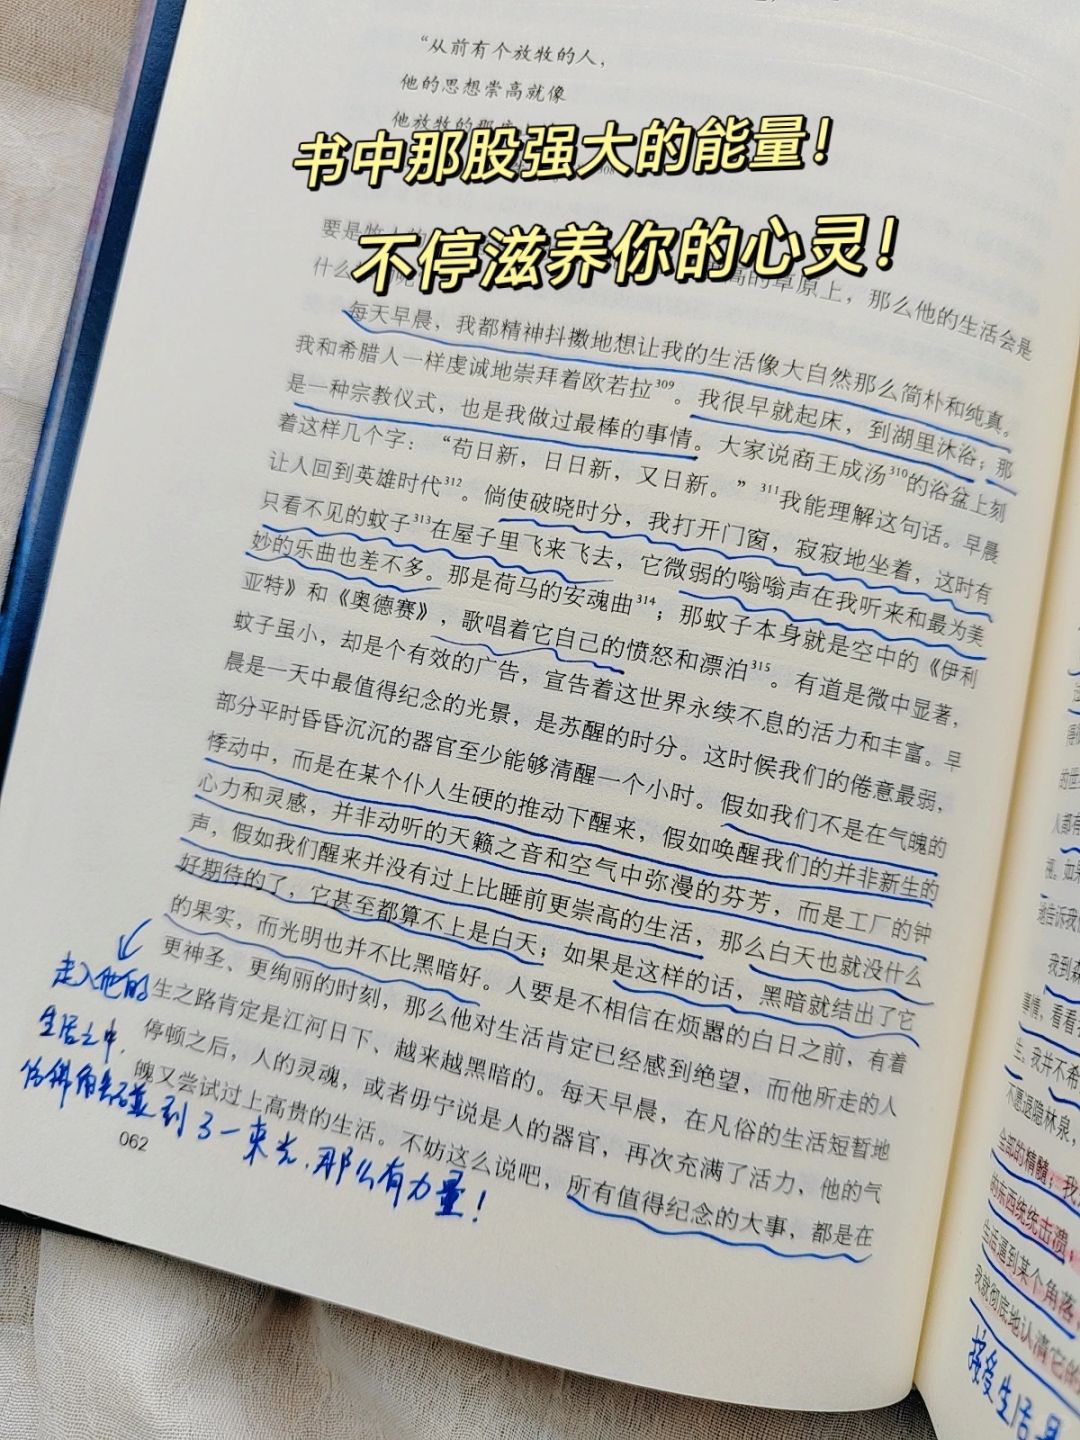 “从前有个放牧的人，
他的思想崇高就像
他放牧的那
书中那股强大的能量！
不停滋养你的心灵！
要是牧人的 高的草原上，那么他的生活会是
什么
每天早晨，我都精神抖擞地想让我的生活像大自然那么简朴和纯真。
我和希腊人一样虔诚地崇拜着欧若拉309。我很早就起床，到湖里沐浴；那
是一种宗教仪式，也是我做过最棒的事情。大家说商王成汤310的浴盆上刻
着这样几个字：“苟日新，日日新，又日新。”311我能理解这句话。早晨
让人回到英雄时代312。倘使破晓时分，我打开门窗，寂寂地坐着，这时有
只看不见的蚊子313在屋子里飞来飞去，它微弱的嗡嗡声在我听来和最为美
妙的乐曲也差不多。那是荷马的安魂曲314；那蚊子本身就是空中的《伊利
亚特》和《奥德赛》，歌唱着它自己的愤怒和漂泊315。有道是微中显著，
蚊子虽小，却是个有效的广告，宣告着这世界永续不息的活力和丰富。早
晨是一天中最值得纪念的光景，是苏醒的时分。这时候我们的倦意最弱，
部分平时昏昏沉沉的器官至少能够清醒一个小时。假如我们不是在气魄的
悸动中，而是在某个仆人生硬的推动下醒来，假如唤醒我们的并非新生的
心力和灵感，并非动听的天籁之音和空气中弥漫的芬芳，而是工厂的钟
声，假如我们醒来并没有过上比睡前更崇高的生活，那么白天也就没什么
好期待的了，它甚至都算不上是白天；如果是这样的话，黑暗就结出了它
的果实，而光明也并不比黑暗好。人要是不相信在烦嚣的白日之前，有着
更神圣、更绚丽的时刻，那么他对生活肯定已经感到绝望，而他所走的人
生之路肯定是江河日下、越来越黑暗的。每天早晨，在凡俗的生活短暂地
停顿之后，人的灵魂，或者毋宁说是人的器官，再次充满了活力，他的气
魄又尝试过上高贵的生活。不妨这么说吧，所有值得纪念的大事，都是在
走入他的
生活之中，
到了一束光，那么有力量！
062
的世
人都有
地告诉我
我到森
事情，看看
生。我并不希
不愿退隐林泉，
全部的精髓；我
的东西统统击溃，
生活逼到某个角落
我就彻底地认清它的
接受生活是